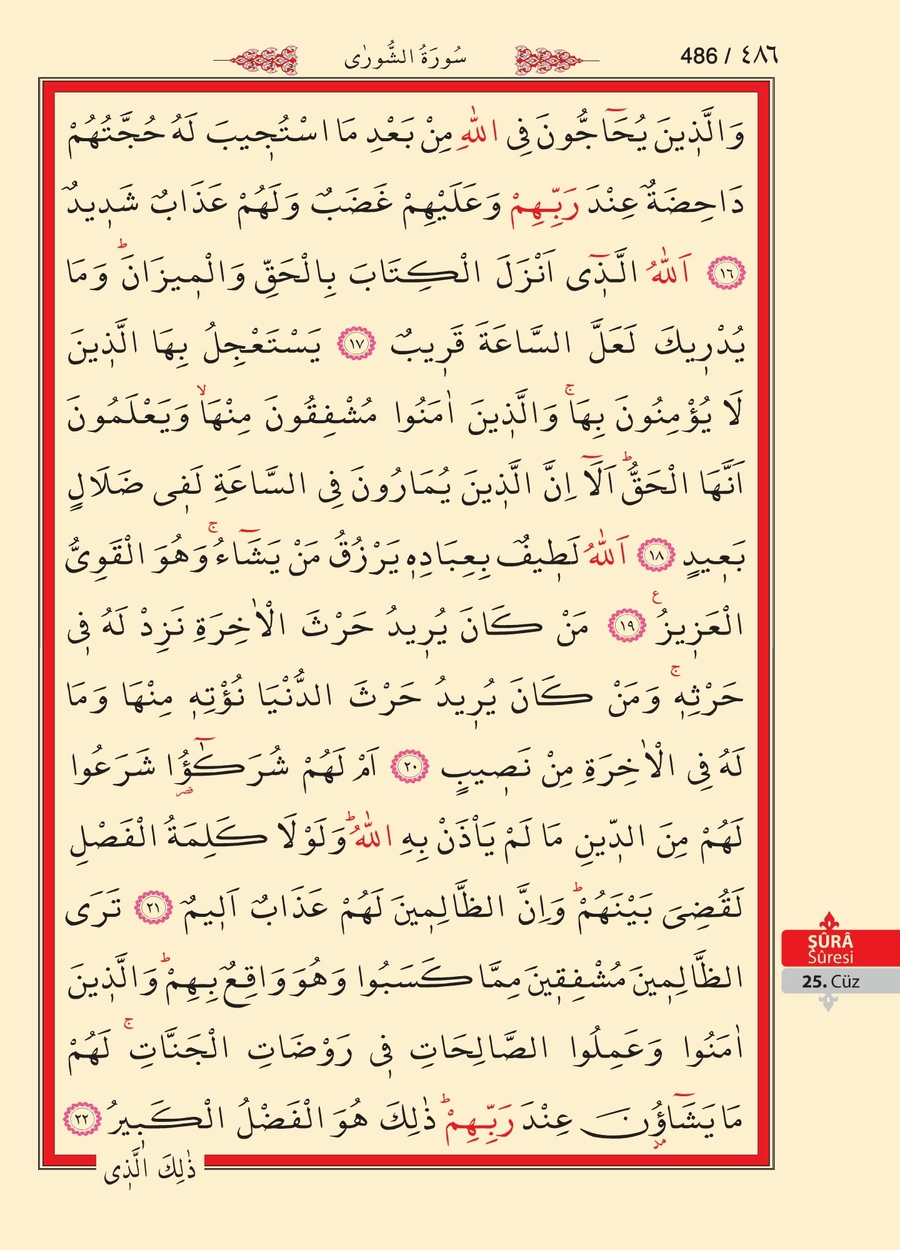 سُورَةُ الشُّورٰى
486 / ٤٨٦
وَالَّذ۪ينَ يُحَٓاجُّونَ فِي اللّٰهِ مِنْ بَعْدِ مَا اسْتُج۪يبَ لَهُ حُجَّتُهُمْ
دَاحِضَةٌ عِنْدَ رَبِّهِمْ وَعَلَيْهِمْ غَضَبٌ وَلَهُمْ عَذَابٌ شَد۪يدٌ
﴿١٦﴾ اَللّٰهُ الَّذ۪ٓي اَنْزَلَ الْكِتَابَ بِالْحَقِّ وَالْم۪يزَانَۜ وَمَا
يُدْر۪يكَ لَعَلَّ السَّاعَةَ قَر۪يبٌ ﴿١٧﴾ يَسْتَعْجِلُ بِهَا الَّذ۪ينَ
لَا يُؤْمِنُونَ بِهَاۚ وَالَّذ۪ينَ اٰمَنُوا مُشْفِقُونَ مِنْهَاۙ وَيَعْلَمُونَ
اَنَّهَا الْحَقُّۜ اَلَٓا اِنَّ الَّذ۪ينَ يُمَارُونَ فِي السَّاعَةِ لَف۪ي ضَلَالٍ
بَع۪يدٍ ﴿١٨﴾ اَللّٰهُ لَط۪يفٌ بِعِبَادِه۪ يَرْزُقُ مَنْ يَشَٓاءُۚ وَهُوَ الْقَوِيُّ
الْعَز۪يزُ۟ ﴿١٩﴾ مَنْ كَانَ يُر۪يدُ حَرْثَ الْاٰخِرَةِ نَزِدْ لَهُ ف۪ي
حَرْثِه۪ۚ وَمَنْ كَانَ يُر۪يدُ حَرْثَ الدُّنْيَا نُؤْتِه۪ مِنْهَا وَمَا
لَهُ فِي الْاٰخِرَةِ مِنْ نَص۪يبٍ ﴿٢٠﴾ اَمْ لَهُمْ شُرَكٰٓؤُ۬ا شَرَعُوا
لَهُمْ مِنَ الدّ۪ينِ مَا لَمْ يَأْذَنْ بِهِ اللّٰهُۜ وَلَوْلَا كَلِمَةُ الْفَصْلِ
لَقُضِيَ بَيْنَهُمْۜ وَاِنَّ الظَّالِم۪ينَ لَهُمْ عَذَابٌ اَل۪يمٌ ﴿٢١﴾ تَرَى
الظَّالِم۪ينَ مُشْفِق۪ينَ مِمَّا كَسَبُوا وَهُوَ وَاقِعٌ بِهِمْۜ وَالَّذ۪ينَ
اٰمَنُوا وَعَمِلُوا الصَّالِحَاتِ ف۪ي رَوْضَاتِ الْجَنَّاتِۚ لَهُمْ
مَا يَشَٓاؤُ۫نَ عِنْدَ رَبِّهِمْۜ ذٰلِكَ هُوَ الْفَضْلُ الْكَب۪يرُ ﴿٢٢﴾
ذٰلِكَ الَّذ۪ي
ŞÛRÂ
Sûresi
25. Cüz